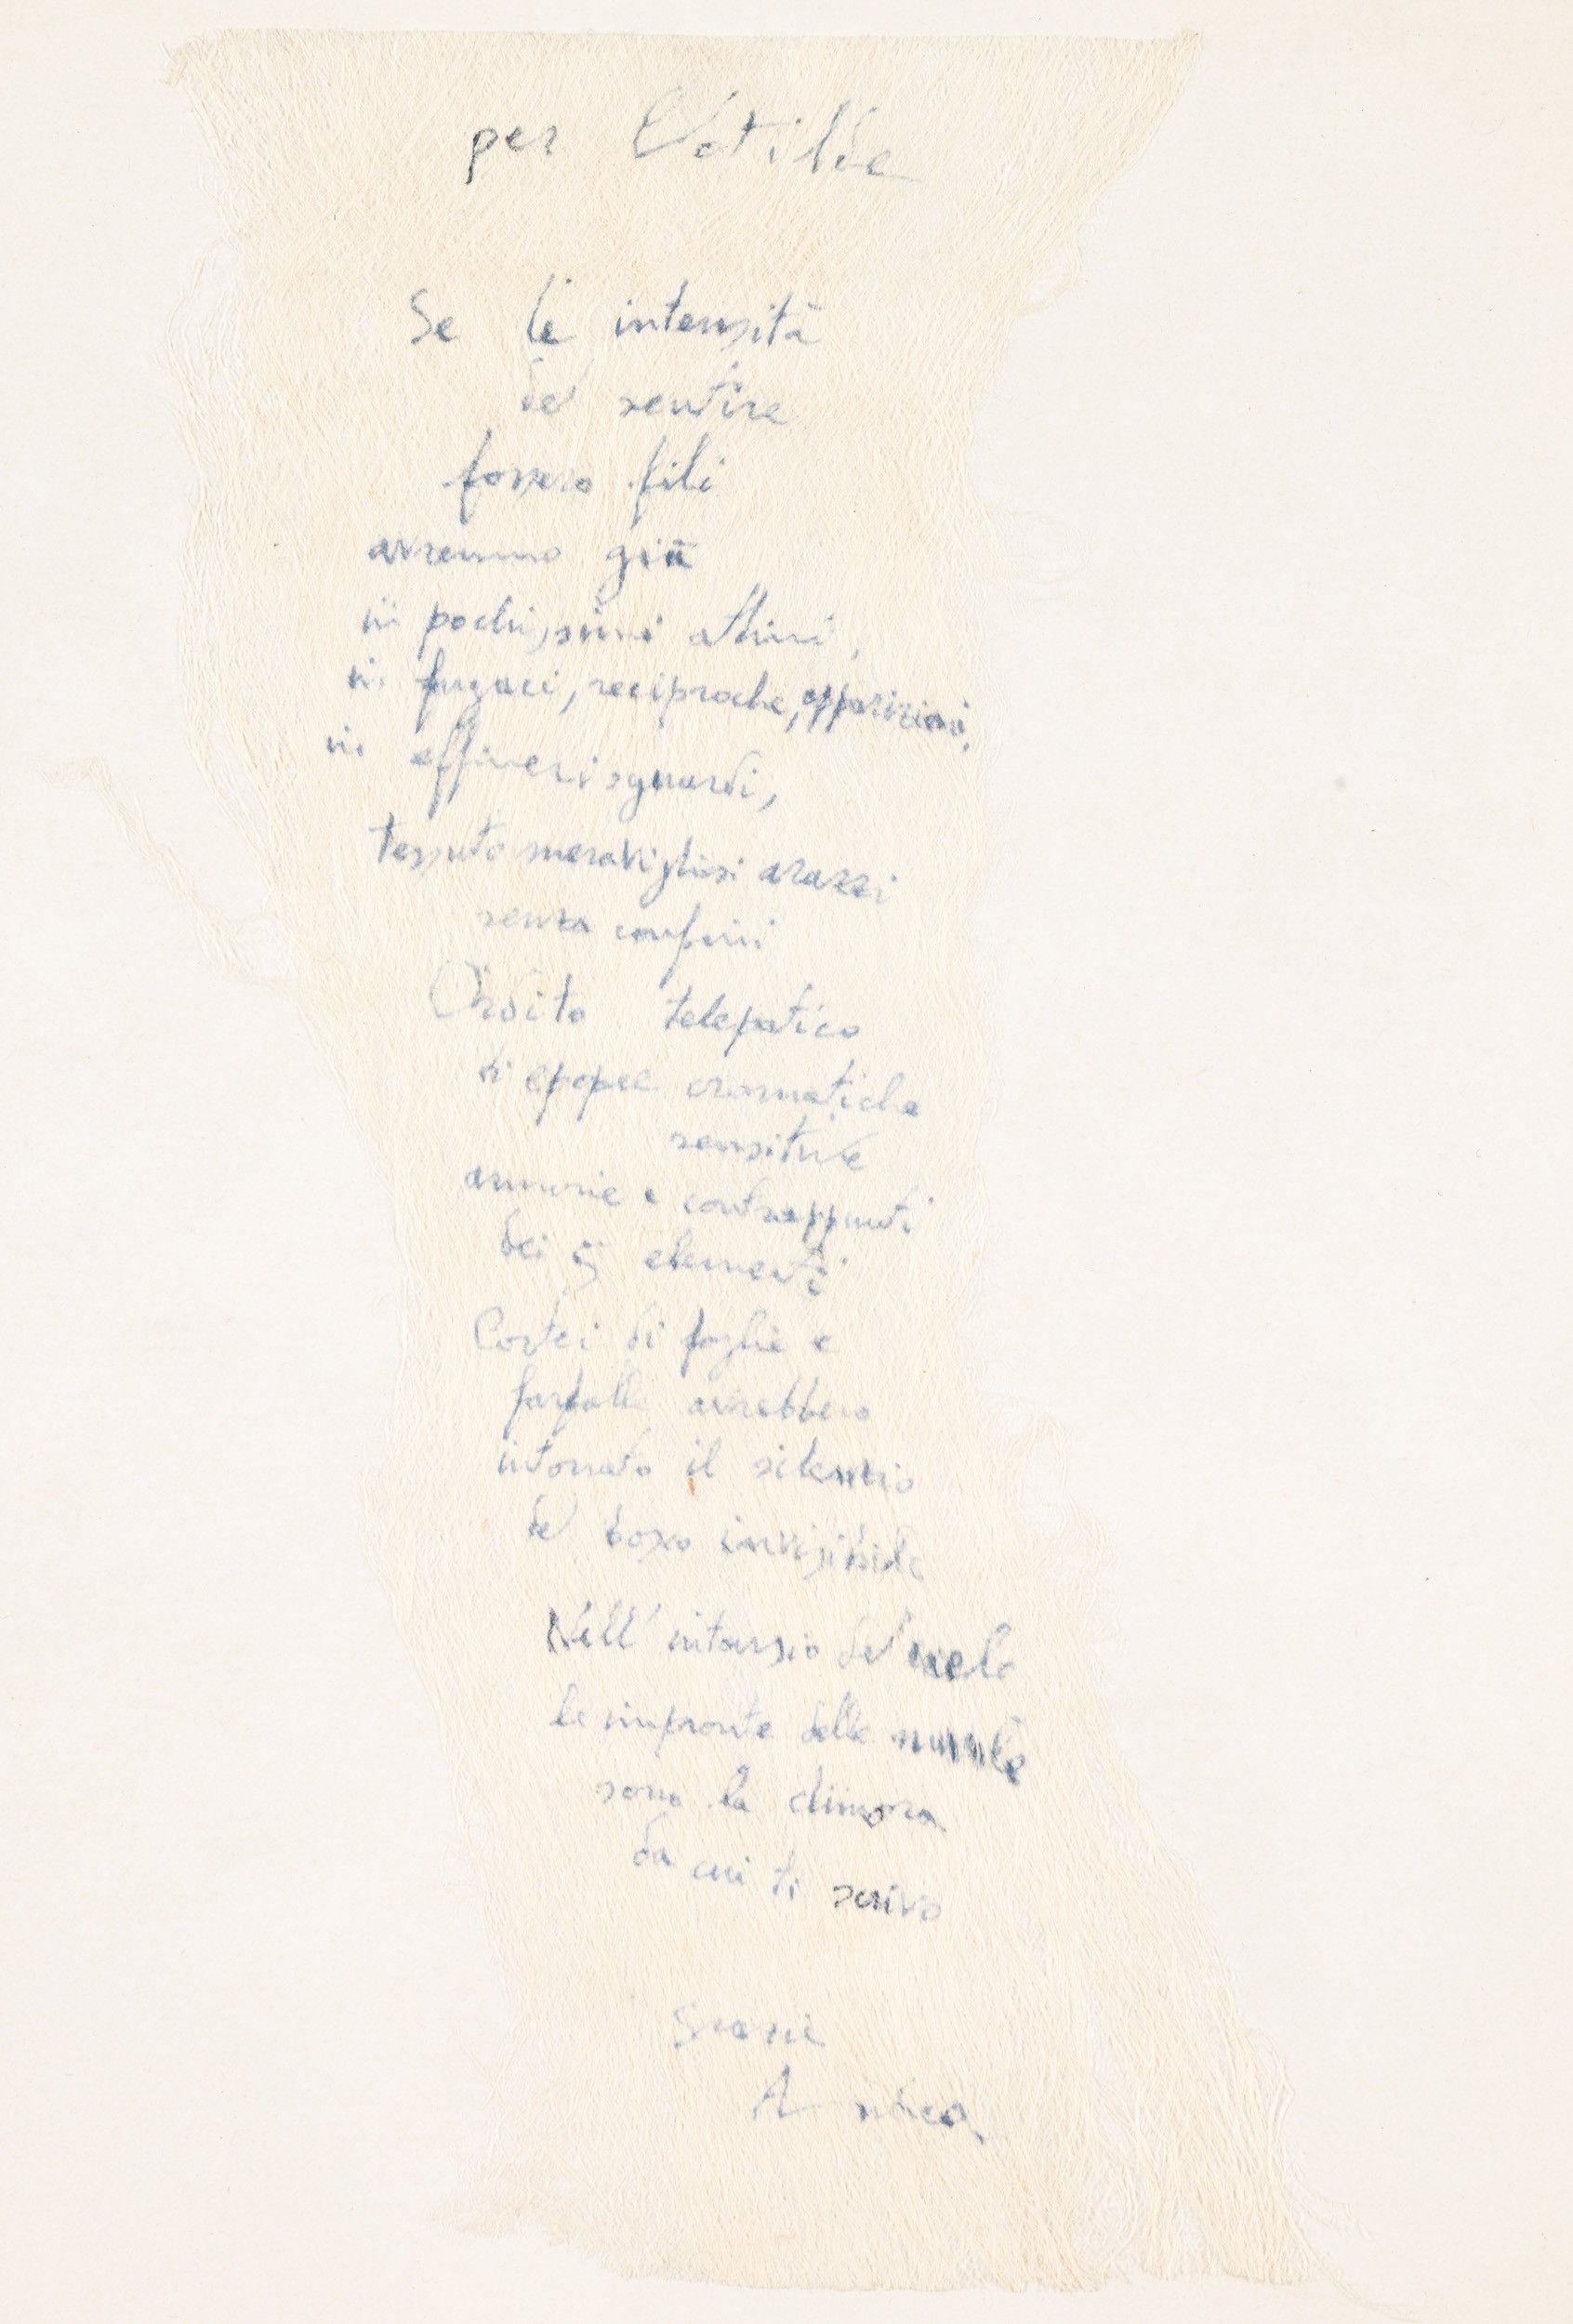 per Clotilde
Se le intensità
del sentire
fossero fili
avremmo già
in pochissimi attimi,
in fugaci, reciproche, apparizioni,
in effimeri sguardi,
tessuto meravigliosi arazzi
senza confini
Ordito telepatico
di epopee cromatiche
sensitive
armonie e contrappunti
dei 5 elementi
Cortei di foglie e
farfalle avrebbero
intonato il silenzio
del bosco invisibile
Nell' intarsio del cielo
le impronte delle nuvole
sono la dimora
da cui ti scrivo
Andrea